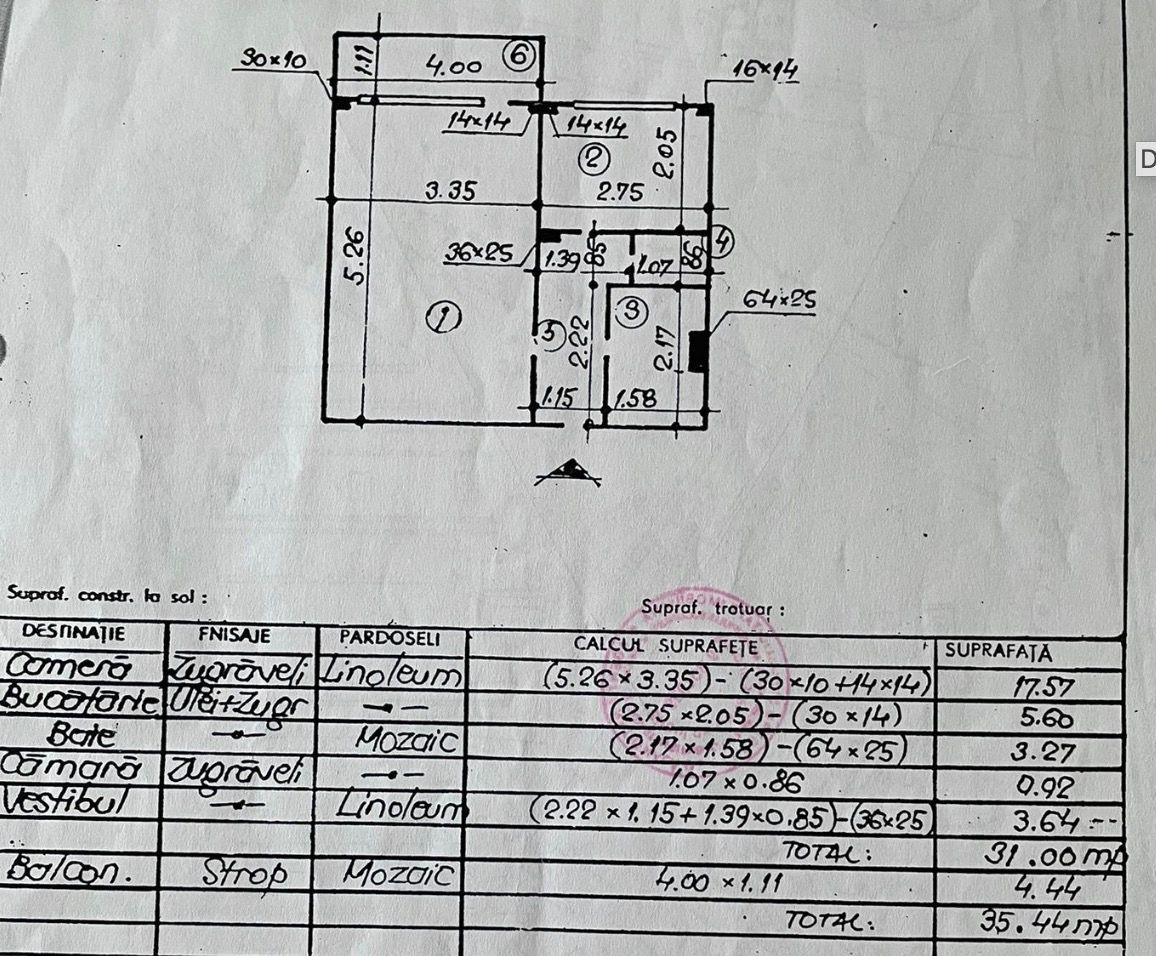 6
30×10
1.11
4.00
16×14
14×14
14×14
2
2.05
3.35
2.75
36×25
1.39
85
1.07
86
4
5.26
64×25
1
5
3
2.22
2.17
1.15
1.58
D
Supraf. constr. la sol :
Supraf. trotuar :
DESTINAȚIE FNISAJE PARDOSELI CALCUL SUPRAFEȚE SUPRAFAȚĂ
Cameră Zugrăveli Linoleum (5.26 × 3.35) - (30×10+14×14) 17.57
Bucatarie Ulei+Zugr —•— (2.75 ×2.05) - (30 ×14) 5.60
Baie —•— Mozaic (2.17 ×1.58) - (64 ×25) 3.27
Cămară Zugrăveli —•— 1.07 × 0.86 0.92
Vestibul —•— Linoleum (2.22 × 1.15 + 1.39×0.85)-(36×25) 3.64
TOTAL: 31.00 mp
Balcon. Strop Mozaic 4.00 ×1.11 4.44
TOTAL: 35.44 mp